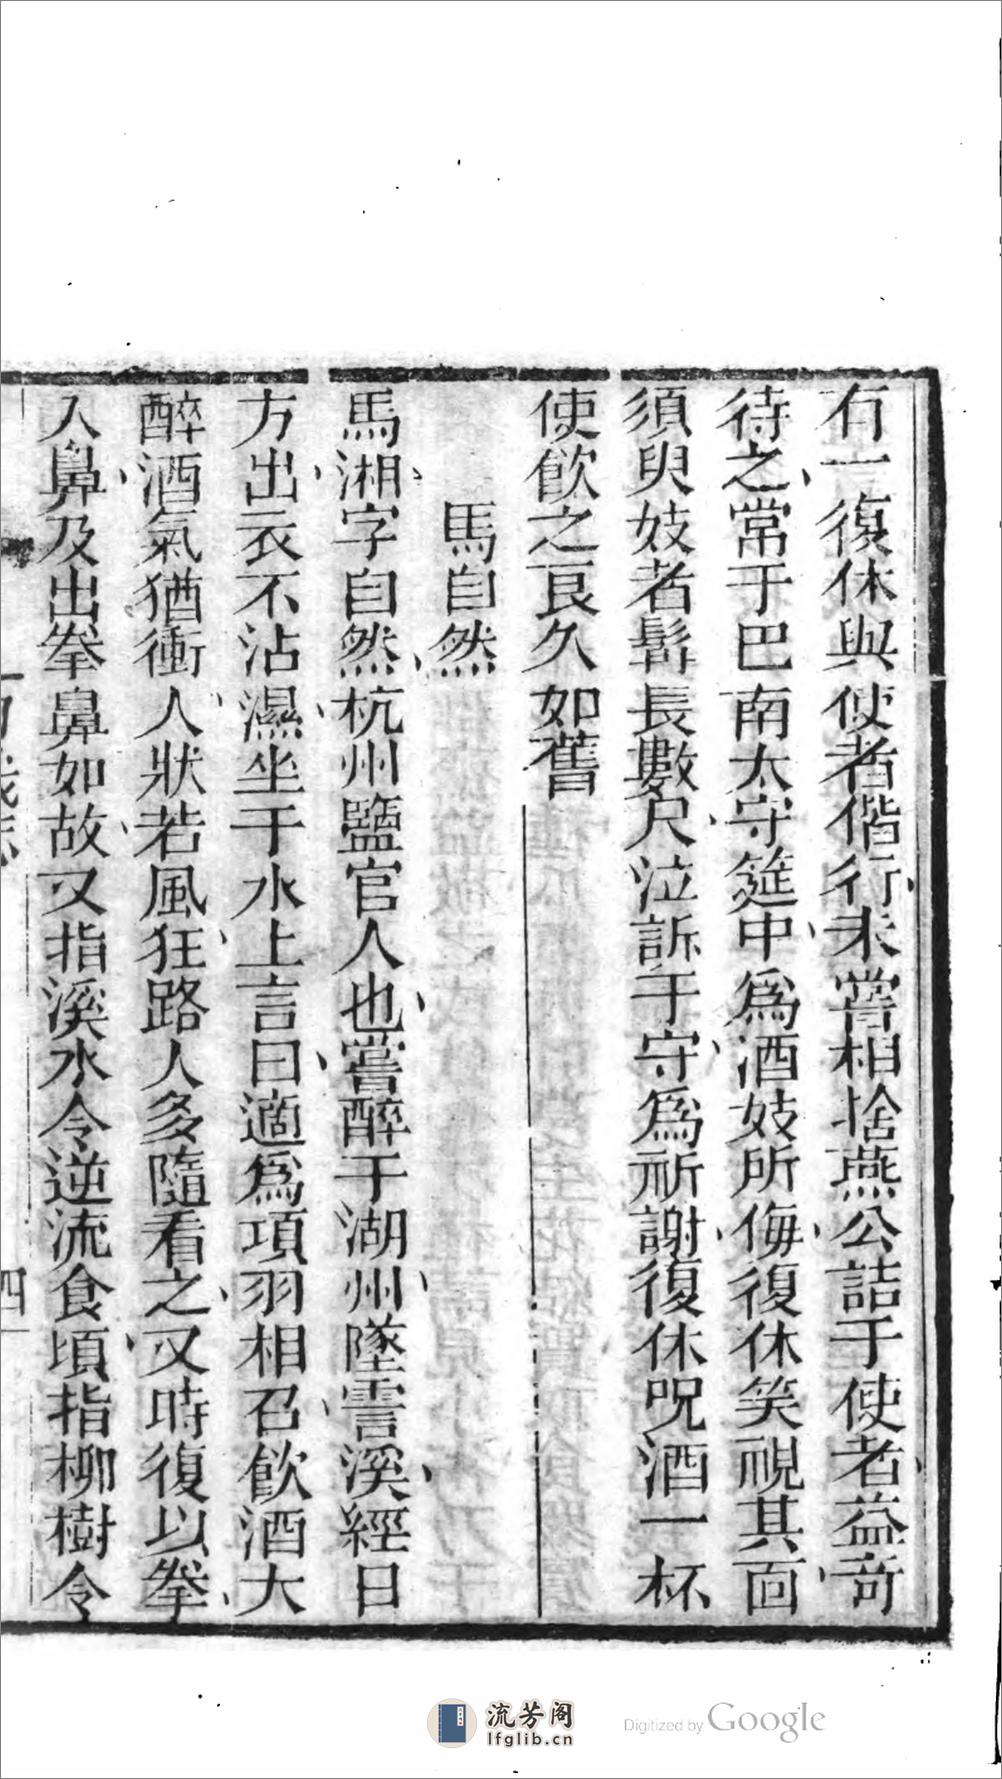 有一復休與使者偕行未嘗相捨燕公詰于使者益奇
待之常于巴南太守筵中爲酒妓所侮復休笑視其面
須臾妓者髯長數尺泣訴于守爲祈謝復休呪酒一杯
使飮之良久如舊
馬自然
馬湘字自然杭州鹽官人也嘗醉于湖州墜霅溪經日
方出衣不沾濕坐于水上言曰適爲項羽相召飮酒大
醉酒氣猶衝人狀若風狂路人多隨看之又時復以拳
入鼻及出拳鼻如故又指溪水令逆流食頃指柳樹令
四
流芳阁
lfglib.cn
Digitized by Google